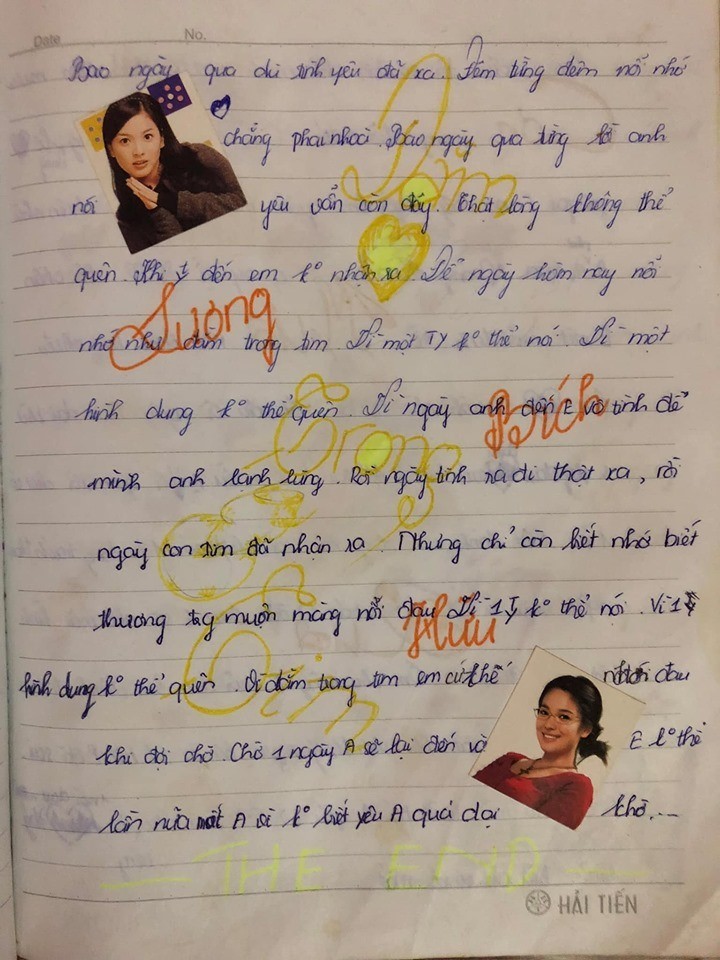 Date No.
Bao ngày qua dù tình yêu đã xa. Đêm từng đêm nỗi nhớ
chẳng phai nhoà. Bao ngày qua từng lời anh
nói yêu vẫn còn đây. Thật lòng không thể
quên. Khi ty đến em ko nhận ra. Để ngày hôm nay nỗi
nhớ như dằm trong tim. Vì một TY ko thể nói. Vì một
hình dung ko thể quên. Vì ngày anh đến E vô tình để
mình anh lạnh lùng. Rồi ngày tình ra đi thật xa, rồi
ngày con tim đã nhận ra. Nhưng chỉ còn biết nhớ biết
thương tg muộn màng nỗi đau. Vì 1 ty ko thể nói. Vì 1
hình dung ko thể quên. Vì dằm trong tim em cứ thế nhói đau
khi đợi chờ. Chờ 1 ngày A sẽ lại đến và E ko thể
lần nữa mất A vì ko biết yêu A quá dại khờ...
Dằm
Trong
Tim
Lương
Bích
Hữu
THE END
HẢI TIẾN